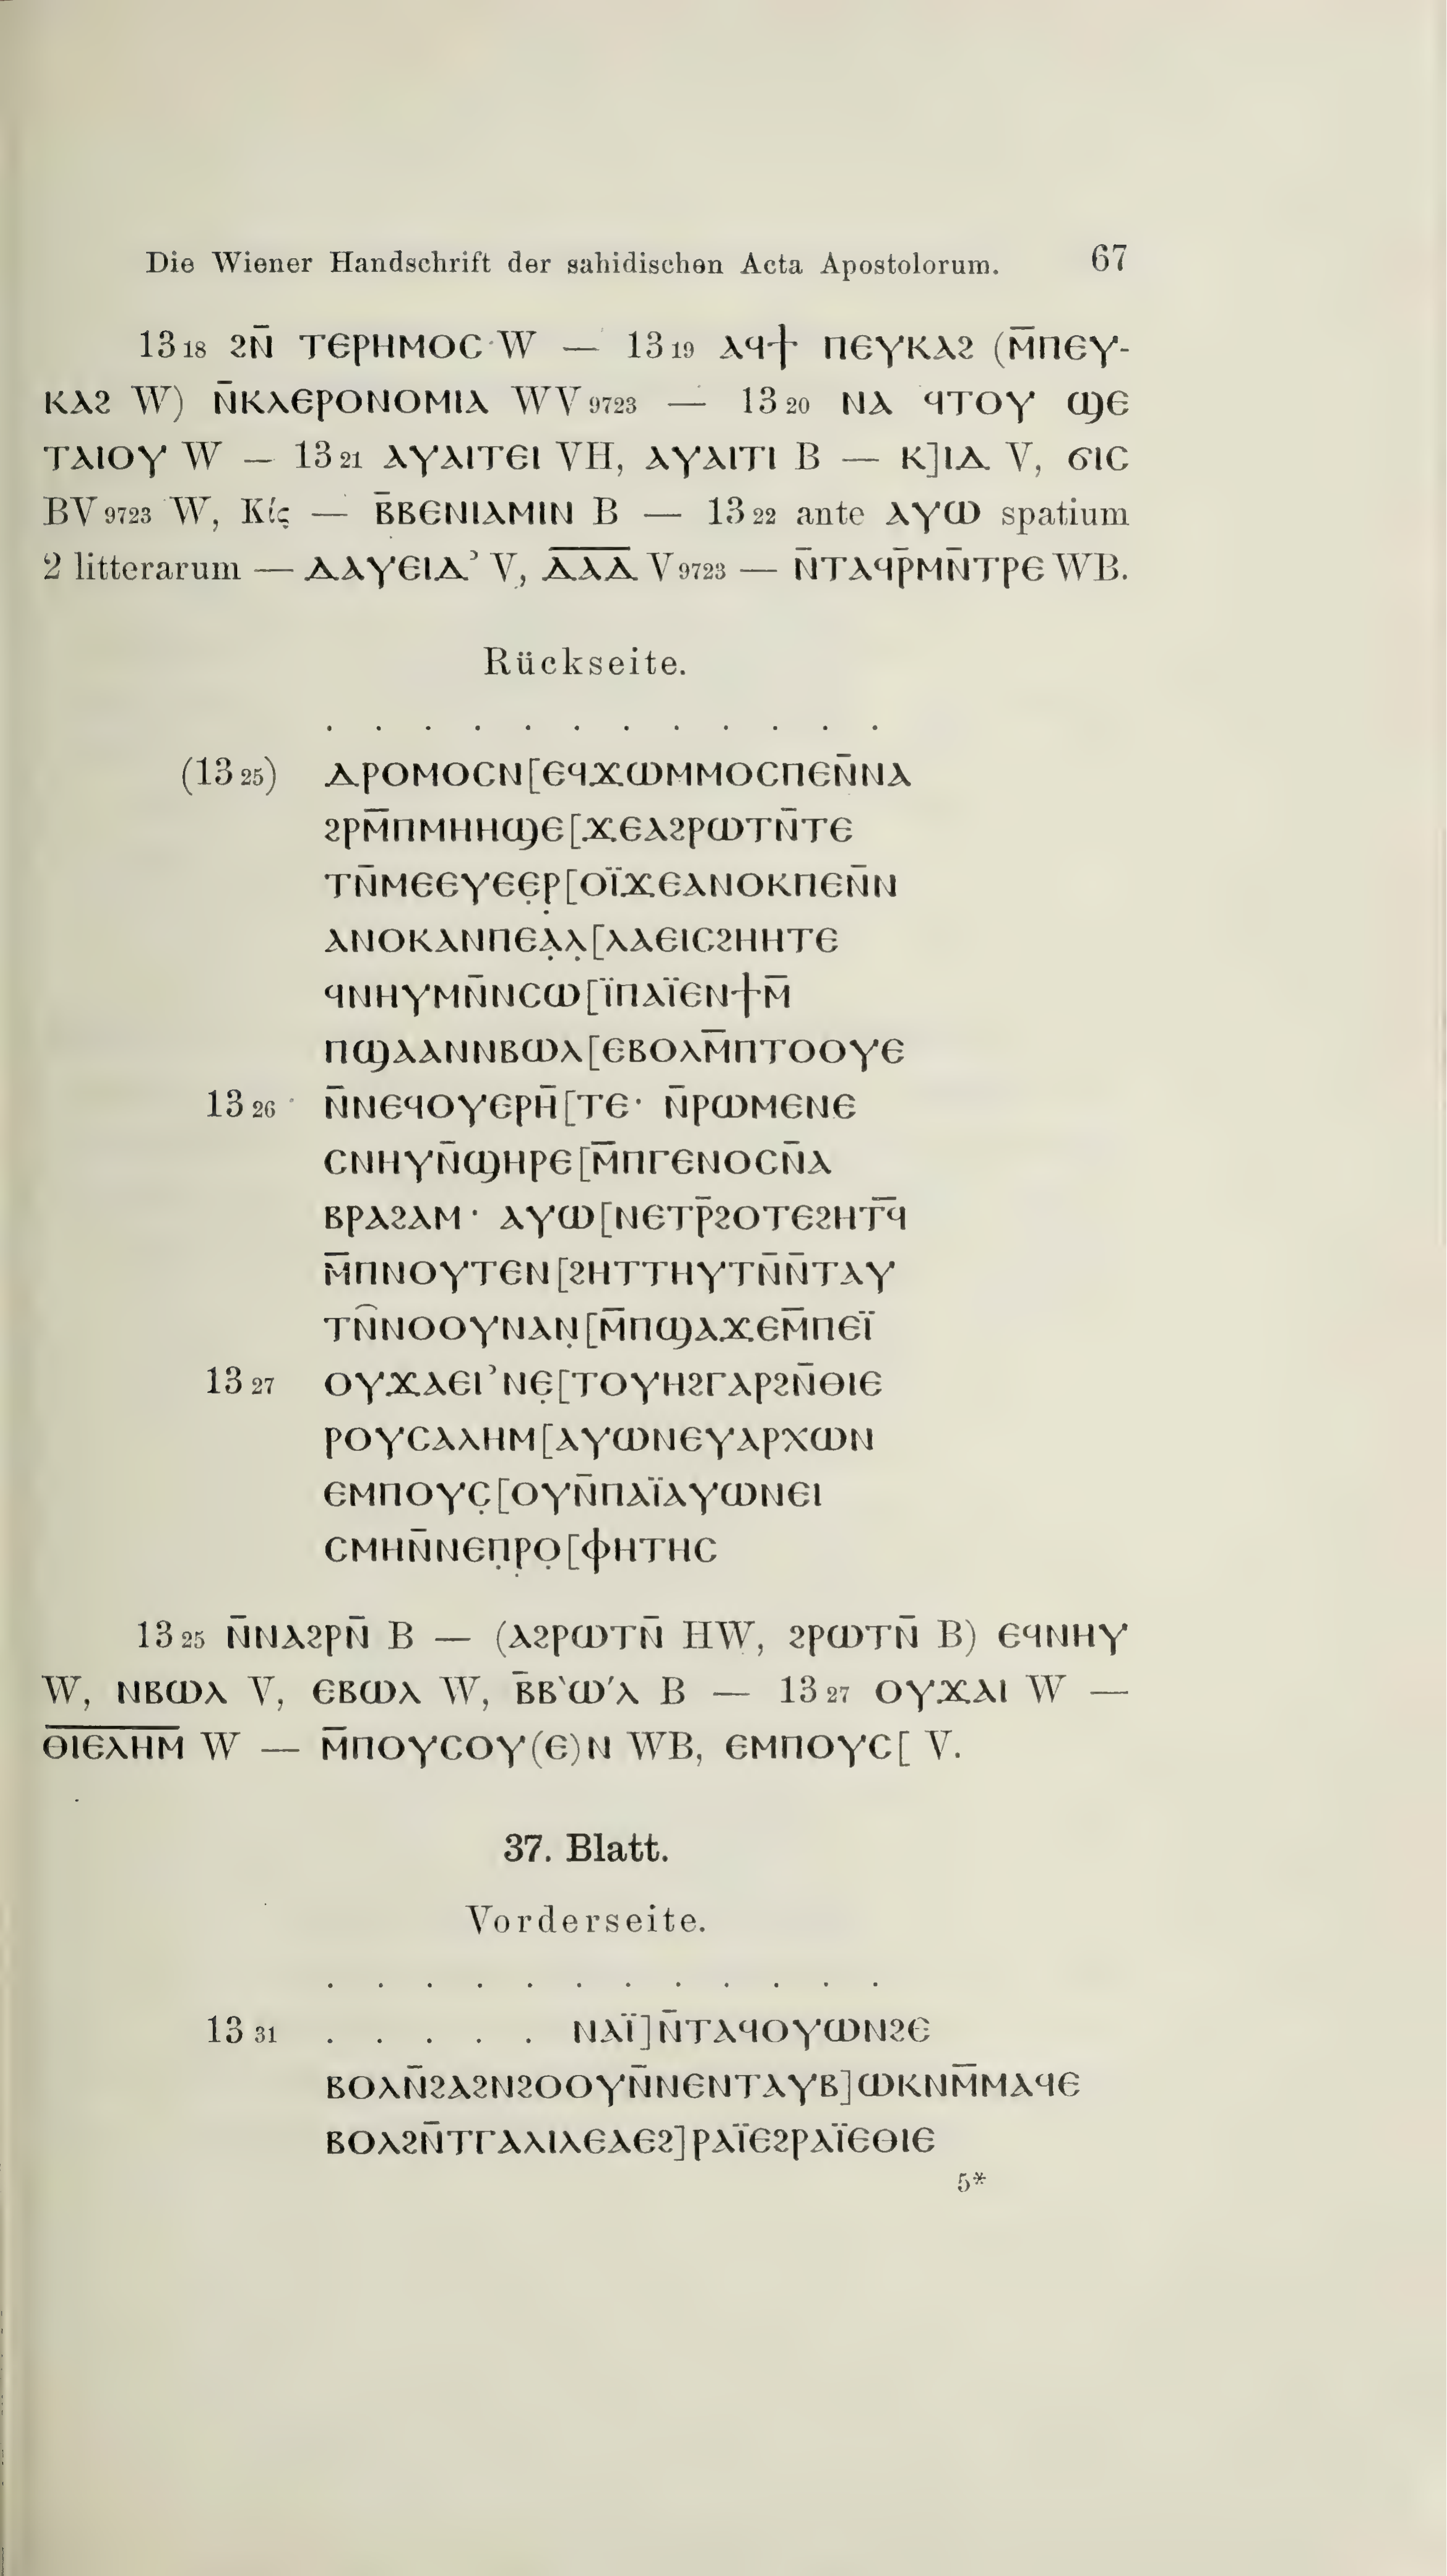 Die Wiener Handschrift der sahidischen Acta Apostolorum. 67
13 18 ϩⲛ̄ ⲧⲉⲣⲏⲙⲟⲥ W — 13 19 ⲁϥϯ ⲡⲉⲩⲕⲁϩ (ⲙ̄ⲡⲉⲩ-
ⲕⲁϩ W) ⲛ̄ⲕⲗⲉⲣⲟⲛⲟⲙⲓⲁ WV 9723 — 13 20 ⲛⲁ ϥⲧⲟⲩ ϣⲉ
ⲧⲁⲓⲟⲩ W — 13 21 ⲁⲩⲁⲓⲧⲉⲓ VH, ⲁⲩⲁⲓⲧⲓ B — ⲕ]ⲓⲇ V, ϭⲓⲥ
BV 9723 W, Κίς — ⲃ̄ⲃⲉⲛⲓⲁⲙⲓⲛ B — 13 22 ante ⲁⲩⲱ spatium
2 litterarum — ⲇⲁⲩⲉⲓⲇ’ V, ⲇ̅ⲁ̅ⲇ̅ V 9723 — ⲛ̄ⲧⲁϥⲣ̄ⲙⲛ̄ⲧⲣⲉ WB.
Rückseite.
. . . . . . . . . . . .
(13 25) ⲇⲣⲟⲙⲟⲥⲛ[ⲉϥϫⲱⲙⲙⲟⲥⲡⲉⲛ̄ⲛⲁ
ϩⲣⲙ̄ⲡⲙⲏⲏϣⲉ[ϫⲉⲁϩⲣⲱⲧⲛ̄ⲧⲉ
ⲧⲛ̄ⲙⲉⲉⲩⲉⲉ̣ⲣ[ⲟⲓ̈ϫⲉⲁⲛⲟⲕⲡⲉⲛ̄ⲛ
ⲁⲛⲟⲕⲁⲛⲡⲉⲁ̣ⲗ̣[ⲗⲁⲉⲓⲥϩⲏⲏⲧⲉ
ϥⲛⲏⲩⲙⲛ̄ⲛⲥⲱ[ⲓ̈ⲡⲁⲓ̈ⲉⲛϯⲙ̄
ⲡϣⲁⲁⲛⲛⲃⲱⲗ[ⲉⲃⲟⲗⲙ̄ⲡⲧⲟⲟⲩⲉ
13 26 ⲛ̄ⲛⲉϥⲟⲩⲉⲣⲏ̄[ⲧⲉ· ⲛ̄ⲣⲱⲙⲉⲛⲉ
ⲥⲛⲏⲩⲛ̄ϣⲏⲣⲉ[ⲙ̄ⲡⲅⲉⲛⲟⲥⲛ̄ⲁ
ⲃⲣⲁϩⲁⲙ· ⲁⲩⲱ[ⲛⲉⲧⲣ̄ϩⲟⲧⲉϩⲏⲧϥ̄
ⲙ̄ⲡⲛⲟⲩⲧⲉⲛ[ϩⲏⲧⲧⲏⲩⲧⲛ̄ⲛ̄ⲧⲁⲩ
ⲧⲛ̑ⲛⲟⲟⲩⲛⲁⲛ̣[ⲙ̄ⲡϣⲁϫⲉⲙ̄ⲡⲉⲓ̈
13 27 ⲟⲩϫⲁⲉⲓ’ⲛⲉ̣[ⲧⲟⲩⲏϩⲅⲁⲣϩⲛ̄ⲑⲓⲉ
ⲣⲟⲩⲥⲁⲗⲏⲙ[ⲁⲩⲱⲛⲉⲩⲁⲣⲭⲱⲛ
ⲉⲙⲡⲟⲩⲥ̣[ⲟⲩⲛ̄ⲡⲁⲓ̈ⲁⲩⲱⲛⲉⲓ
ⲥⲙⲏⲛ̄ⲛⲉⲡ̣ⲣ̣ⲟ̣[ⲫⲏⲧⲏⲥ
13 25 ⲛ̄ⲛⲁϩⲣⲛ̄ B — (ⲁϩⲣⲱⲧⲛ̄ HW, ϩⲣⲱⲧⲛ̄ B) ⲉϥⲛⲏⲩ
W, ⲛⲃⲱⲗ V, ⲉⲃⲱⲗ W, ⲃ̄ⲃ‵ⲱ′ⲗ B — 13 27 ⲟⲩϫⲁⲓ W —
ⲑ̅ⲓ̅ⲉ̅ⲗ̅ⲏ̅ⲙ̅ W — ⲙ̄ⲡⲟⲩⲥⲟⲩ(ⲉ)ⲛ WB, ⲉⲙⲡⲟⲩⲥ[ V.
37. Blatt.
Vorderseite.
. . . . . . . . . . . .
13 31 . . . . . ⲛⲁⲓ̈]ⲛ̄ⲧⲁϥⲟⲩⲱⲛϩⲉ
ⲃⲟⲗⲛ̄ϩⲁϩⲛϩⲟⲟⲩⲛ̄ⲛⲉⲛⲧⲁⲩⲃ]ⲱⲕⲛⲙ̄ⲙⲁϥⲉ
ⲃⲟⲗϩⲛ̄ⲧⲅⲁⲗⲓⲗⲉⲁⲉϩ]ⲣⲁⲓ̈ⲉϩⲣⲁⲓ̈ⲉⲑⲓⲉ
5*